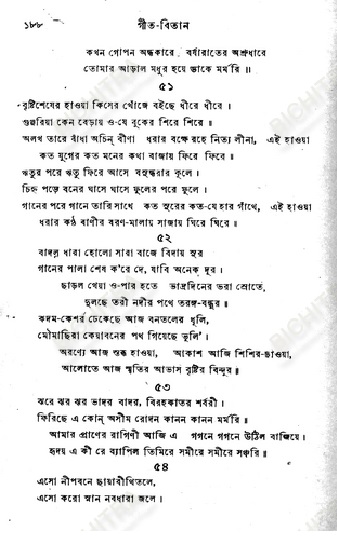 ১৮৮ গীত-বিতান
কখন গোপন অন্ধকারে বর্ষারাতের অশ্রুধারে
তোমার আড়াল মধুর হয়ে ডাকে মর্মরি ॥
৫১
বৃষ্টিশেষের হাওয়া কিসের খোঁজে বইছে ধীরে ধীরে ।
গুঞ্জরিয়া কেন বেড়ায় ও-যে বুকের শিরে শিরে ।
অলখ তারে বাঁধা অচিন বীণা ধরার বক্ষে রহে নিত্য লীনা, এই হাওয়া
কত যুগের কত মনের কথা বাজায় ফিরে ফিরে ।
ঋতুর পরে ঋতু ফিরে আসে বসুন্ধরার কূলে ।
চিহ্ন পড়ে বনের ঘাসে ঘাসে ফুলের পরে ফুলে ।
গানের পরে গানে তারি সাথে কত সুরের কত-যে হার গাঁথে, এই হাওয়া
ধরার কণ্ঠ বাণীর বরণ-মালায় সাজায় ঘিরে ঘিরে ।
৫২
বাদল ধারা হোলো সারা বাজে বিদায় সুর
গানের পালা শেষ ক'রে দে, যাবি অনেক দূর ।
ছাড়ল খেয়া ও-পার হতে ভাদ্রদিনের ভরা স্রোতে,
দুলছে তরী নদীর পথে তরঙ্গ-বন্ধুর ॥
কদম-কেশর ঢেকেছে আজ বনতলের ধূলি,
মৌমাছিরা কেয়াবনের পথ গিয়েছে ভুলি' ।
অরণ্যে আজ স্তব্ধ হাওয়া, আকাশ আজি শিশির-ছাওয়া,
আলোতে আজ স্মৃতির আভাস বৃষ্টির বিন্দুর ॥
৫৩
ঝরে ঝর ঝর ভাদর বাদর, বিরহকাতর শর্বরী ।
ফিরিছে এ কোন্ অসীম রোদন কানন কানন মর্মরি ॥
আমার প্রাণের রাগিণী আজি এ গগনে গগনে উঠিল বাজিয়ে ।
হৃদয় এ কী রে ব্যাপিল তিমিরে সমীরে সমীরে সঞ্চরি ॥
৫৪
এসো নীপবনে ছায়াবীথিতলে,
এসো করো স্নান নবধারা জলে ।